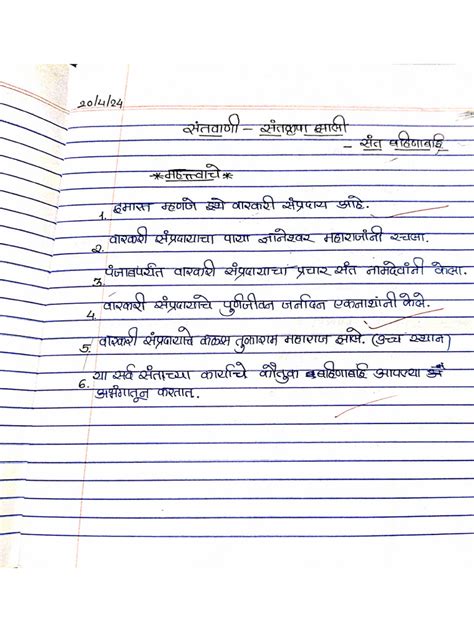 20/4/24
संतवाणी - संतकृपा झाली
- संत बहिणाबाई
* महत्त्वाचे *
1. इमारत म्हणजे इथे वारकरी संप्रदाय आहे.
2. वारकरी संप्रदायाचा पाया ज्ञानेश्वर महाराजांनी रचला.
3. पंजाबपर्यंत वारकरी संप्रदायाचा प्रचार संत नामदेवांनी केला.
4. वारकरी संप्रदायाचे पुर्णजीवन जर्नादन एकनाथांनी केले.
5. वारकरी संप्रदायाचे कळस तुकाराम महाराज झाले. (उच्च स्थान)
6. या सर्व संताच्या कार्याचे कौतुक बहिणाबाई आपल्या
अभंगातून करतात.